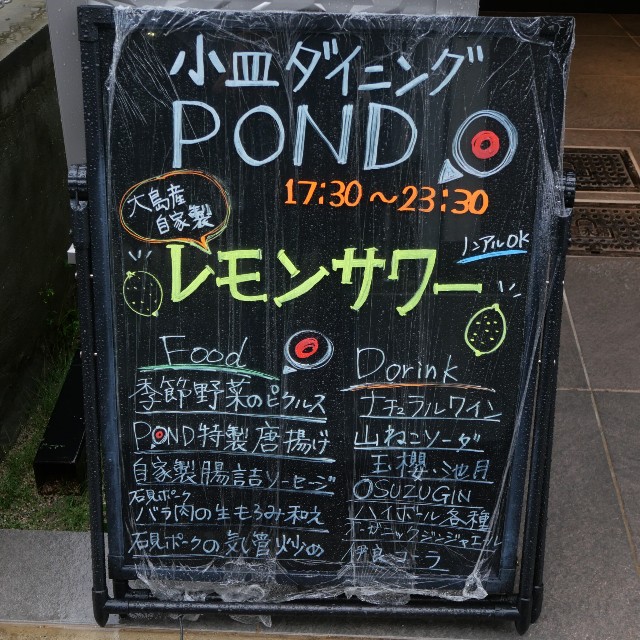 小皿ダイニング
POND
17:30～23:30
大島産
自家製
レモンサワー
ノンアルOK
Food
季節野菜のピクルス
POND特製唐揚げ
自家製腸詰ソーセージ
石見ポーク
バラ肉の生もろみ和え
石見ポークの気管炒め
Dorink
ナチュラルワイン
山ねこソーダ
玉櫻・池月
OSUZUGIN
ハイボール各種
オーガニックジンジャエール
伊良コーラ